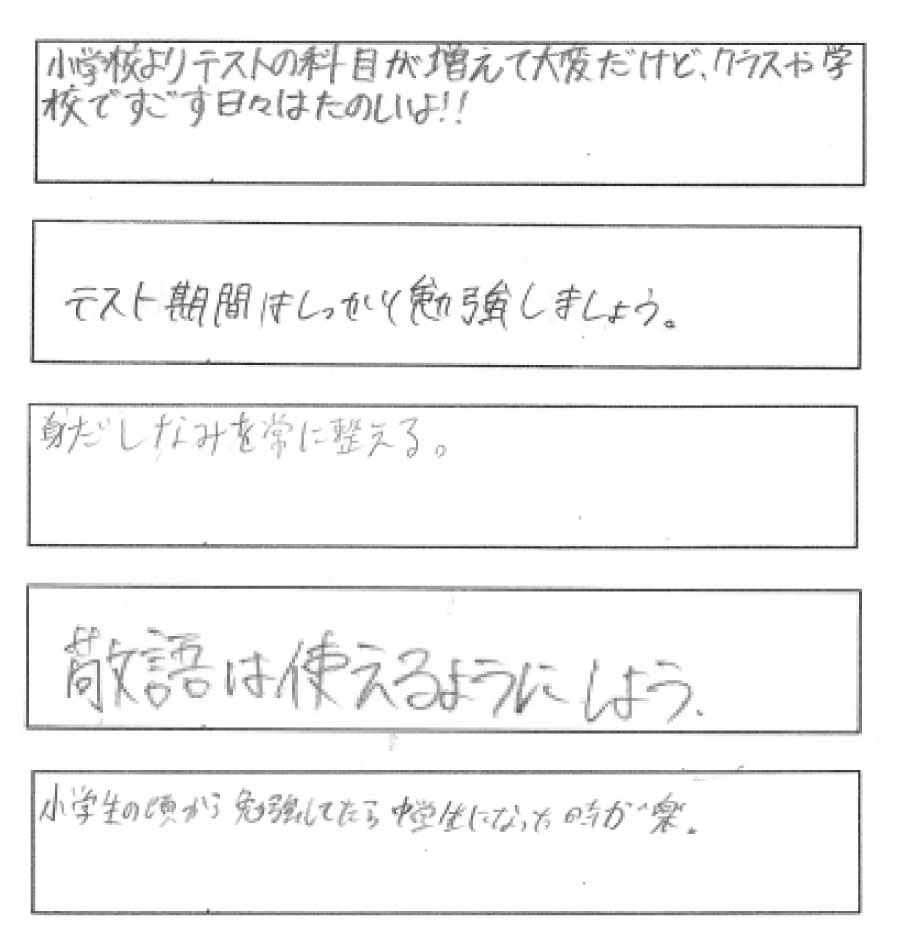 小学校よりテストの科目が増えて大変だけど、クラスや学
校ですごす日々はたのしいよ!!
テスト期間はしっかり勉強しましょう。
身だしなみを常に整える。
敬語は使えるようにしよう.
小学生の頃から勉強してたら中学生になった時が楽.